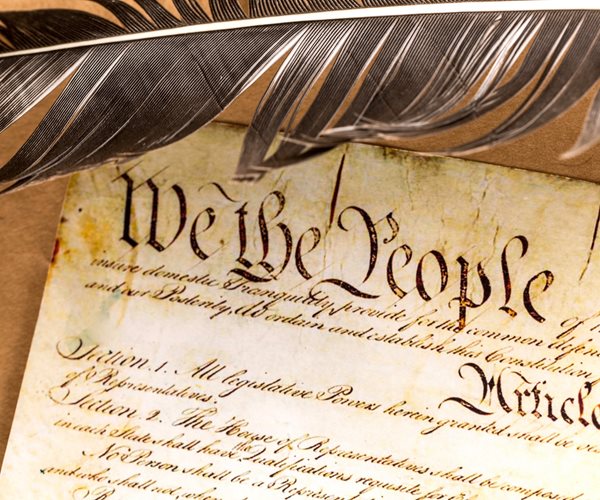 We the People
insure domestic Tranquility, provide for the common defen
and our Posterity, do ordain and establish this Constitution
Article
Section. 1. All legislative Powers herein granted shall be
of Representatives.
Section. 2. The House of Representatives shall be composed
in each State shall have the Qualifications requisite for
No Person shall be a Represen
and who shall not,